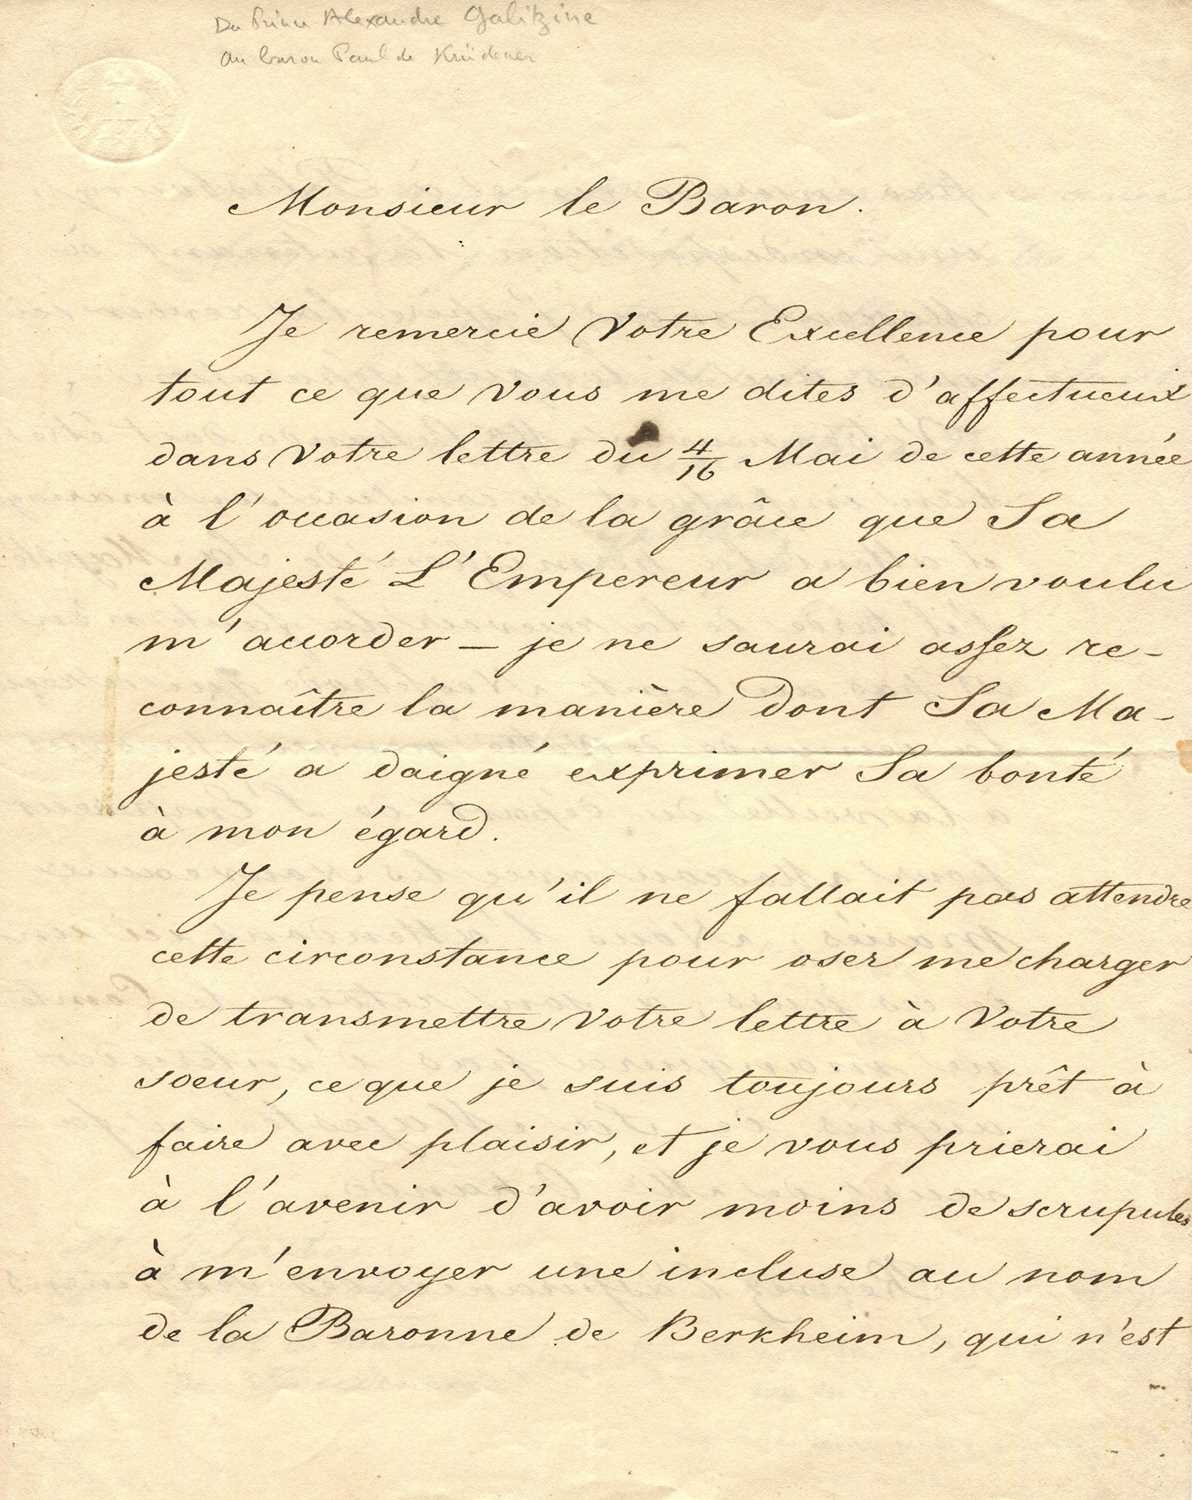 Du Prince Alexandre Galitzine
au baron Paul de Krüdener
Monsieur le Baron.
Je remercie Votre Excellence pour
tout ce que Vous me dites d'affectueux
dans Votre lettre du 4/16 Mai de cette année
à l'occasion de la grâce que Sa
Majesté L'Empereur a bien voulu
m'accorder — je ne saurai assez re-
connaître la manière dont Sa Ma-
jesté a daigné exprimer Sa bonté
à mon égard.
Je pense qu'il ne fallait pas attendre
cette circonstance pour oser me charger
de transmettre Votre lettre à Votre
soeur, ce que je suis toujours prêt à
faire avec plaisir, et je vous prierai
à l'avenir d'avoir moins de scrupules
à m'envoyer une incluse au nom
de la Baronne de Berkheim, qui n'est